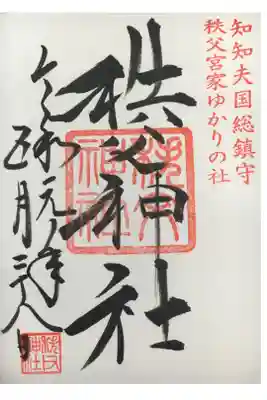 知知夫国総鎮守
秩父宮家ゆかりの社
秩父神社
秩父
神社
令和元年
五月
日
秩父
神社